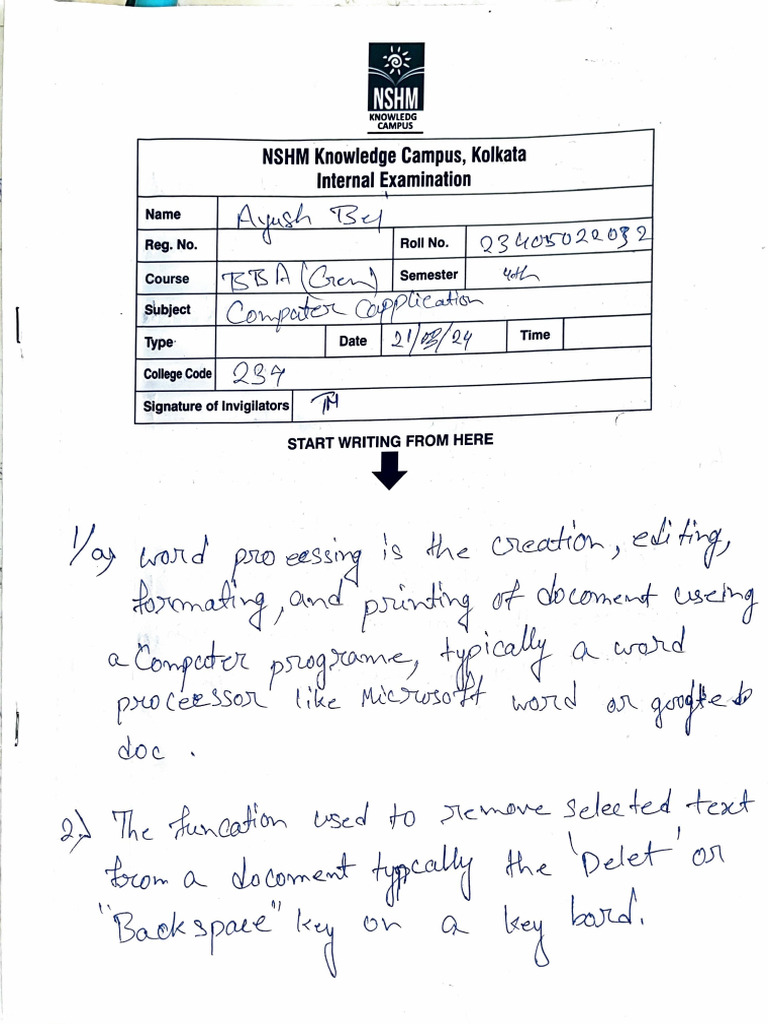 NSHM
KNOWLEDG
CAMPUS
NSHM Knowledge Campus, Kolkata
Internal Examination
Name Ayush Bej
Reg. No. Roll No. 23405022032
Course BBA (Gen) Semester 4th
Subject Computer Capplication
Type Date 21/03/24 Time
College Code 234
Signature of Invigilators TM
START WRITING FROM HERE
1/a) word processing is the creation, editing,
formating, and printing of docoment useing
a Computer programe, typically a word
processor like Microsoft word or google
doc .
2.) The funcation used to remove selected text
from a docoment typically the 'Delet' or
"Backspace" key on a key bord.